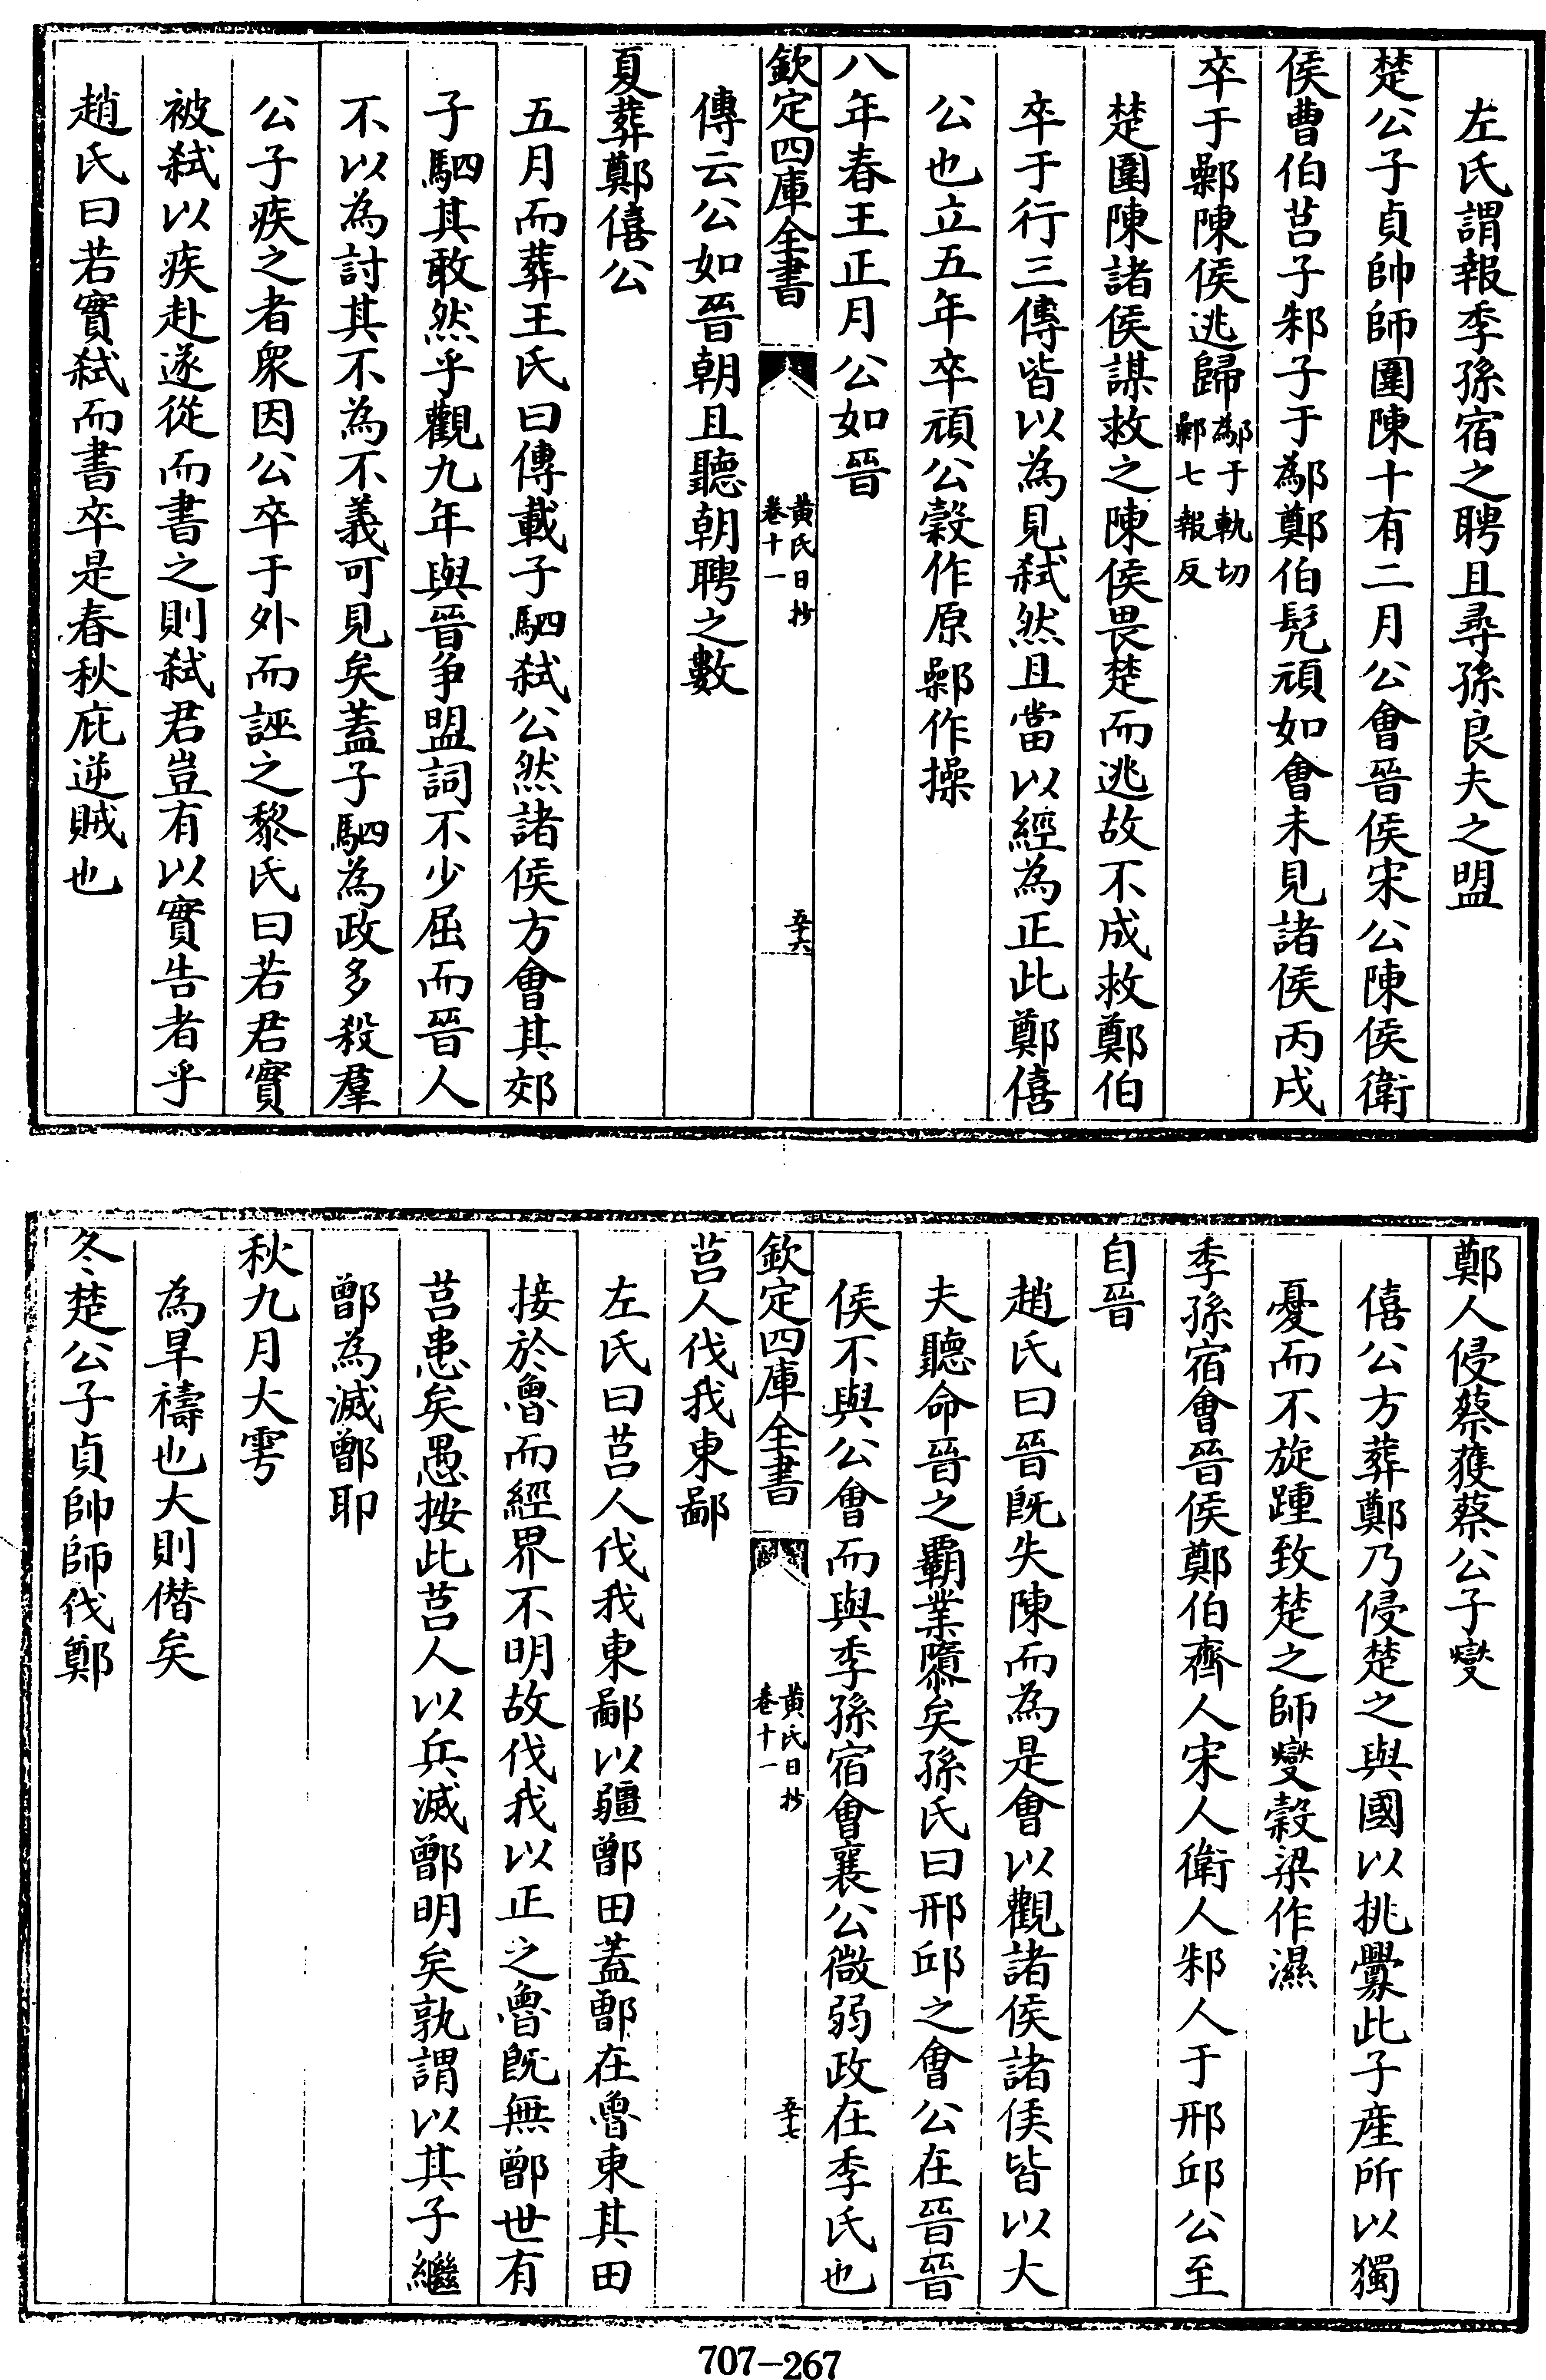 左氏謂報季孫宿之聘且尋孫良夫之盟
楚公子貞帥師圍陳十有二月公會晉侯宋公陳侯衛
侯曹伯莒子邾子于鄬鄭伯髠頑如會未見諸侯丙戌
卒于鄵陳侯逃歸鄬于軌切
鄵七報反
楚圍陳諸侯謀救之陳侯畏楚而逃故不成救鄭伯
卒于行三傳皆以為見弑然且當以經為正此鄭僖
公也立五年卒頑公榖作原鄵作操
八年春王正月公如晉
欽定四庫全書
黃氏日抄
卷十一
五十六
傳云公如晉朝且聽朝聘之數
夏葬鄭僖公
五月而葬王氏曰傳載子駟弑公然諸侯方會其郊
子駟其敢然乎觀九年與晉爭盟詞不少屈而晉人
不以為討其不為不義可見矣蓋子駟為政多殺羣
公子疾之者衆因公卒于外而誣之黎氏曰若君實
被弑以疾赴遂從而書之則弑君豈有以實告者乎
趙氏曰若實弑而書卒是春秋庇逆賊也
鄭人侵蔡獲蔡公子燮
僖公方葬鄭乃侵楚之與國以挑釁此子産所以獨
憂而不旋踵致楚之師燮榖梁作濕
季孫宿會晉侯鄭伯齊人宋人衛人邾人于邢邱公至
自晉
趙氏曰晉旣失陳而為是會以觀諸侯諸侯皆以大
夫聽命晉之霸業隳矣孫氏曰邢邱之會公在晉晉
侯不與公會而與季孫宿會襄公微弱政在季氏也
欽定四庫全書
黃氏日抄
卷十一
五十七
莒人伐我東鄙
左氏曰莒人伐我東鄙以疆鄫田蓋鄫在魯東其田
接於魯而經界不明故伐我以正之魯旣無鄫世有
莒患矣愚按此莒人以兵滅鄫明矣孰謂以其子繼
鄫為滅鄫耶
秋九月大雩
為旱禱也大則僭矣
冬楚公子貞帥師伐鄭
707-267